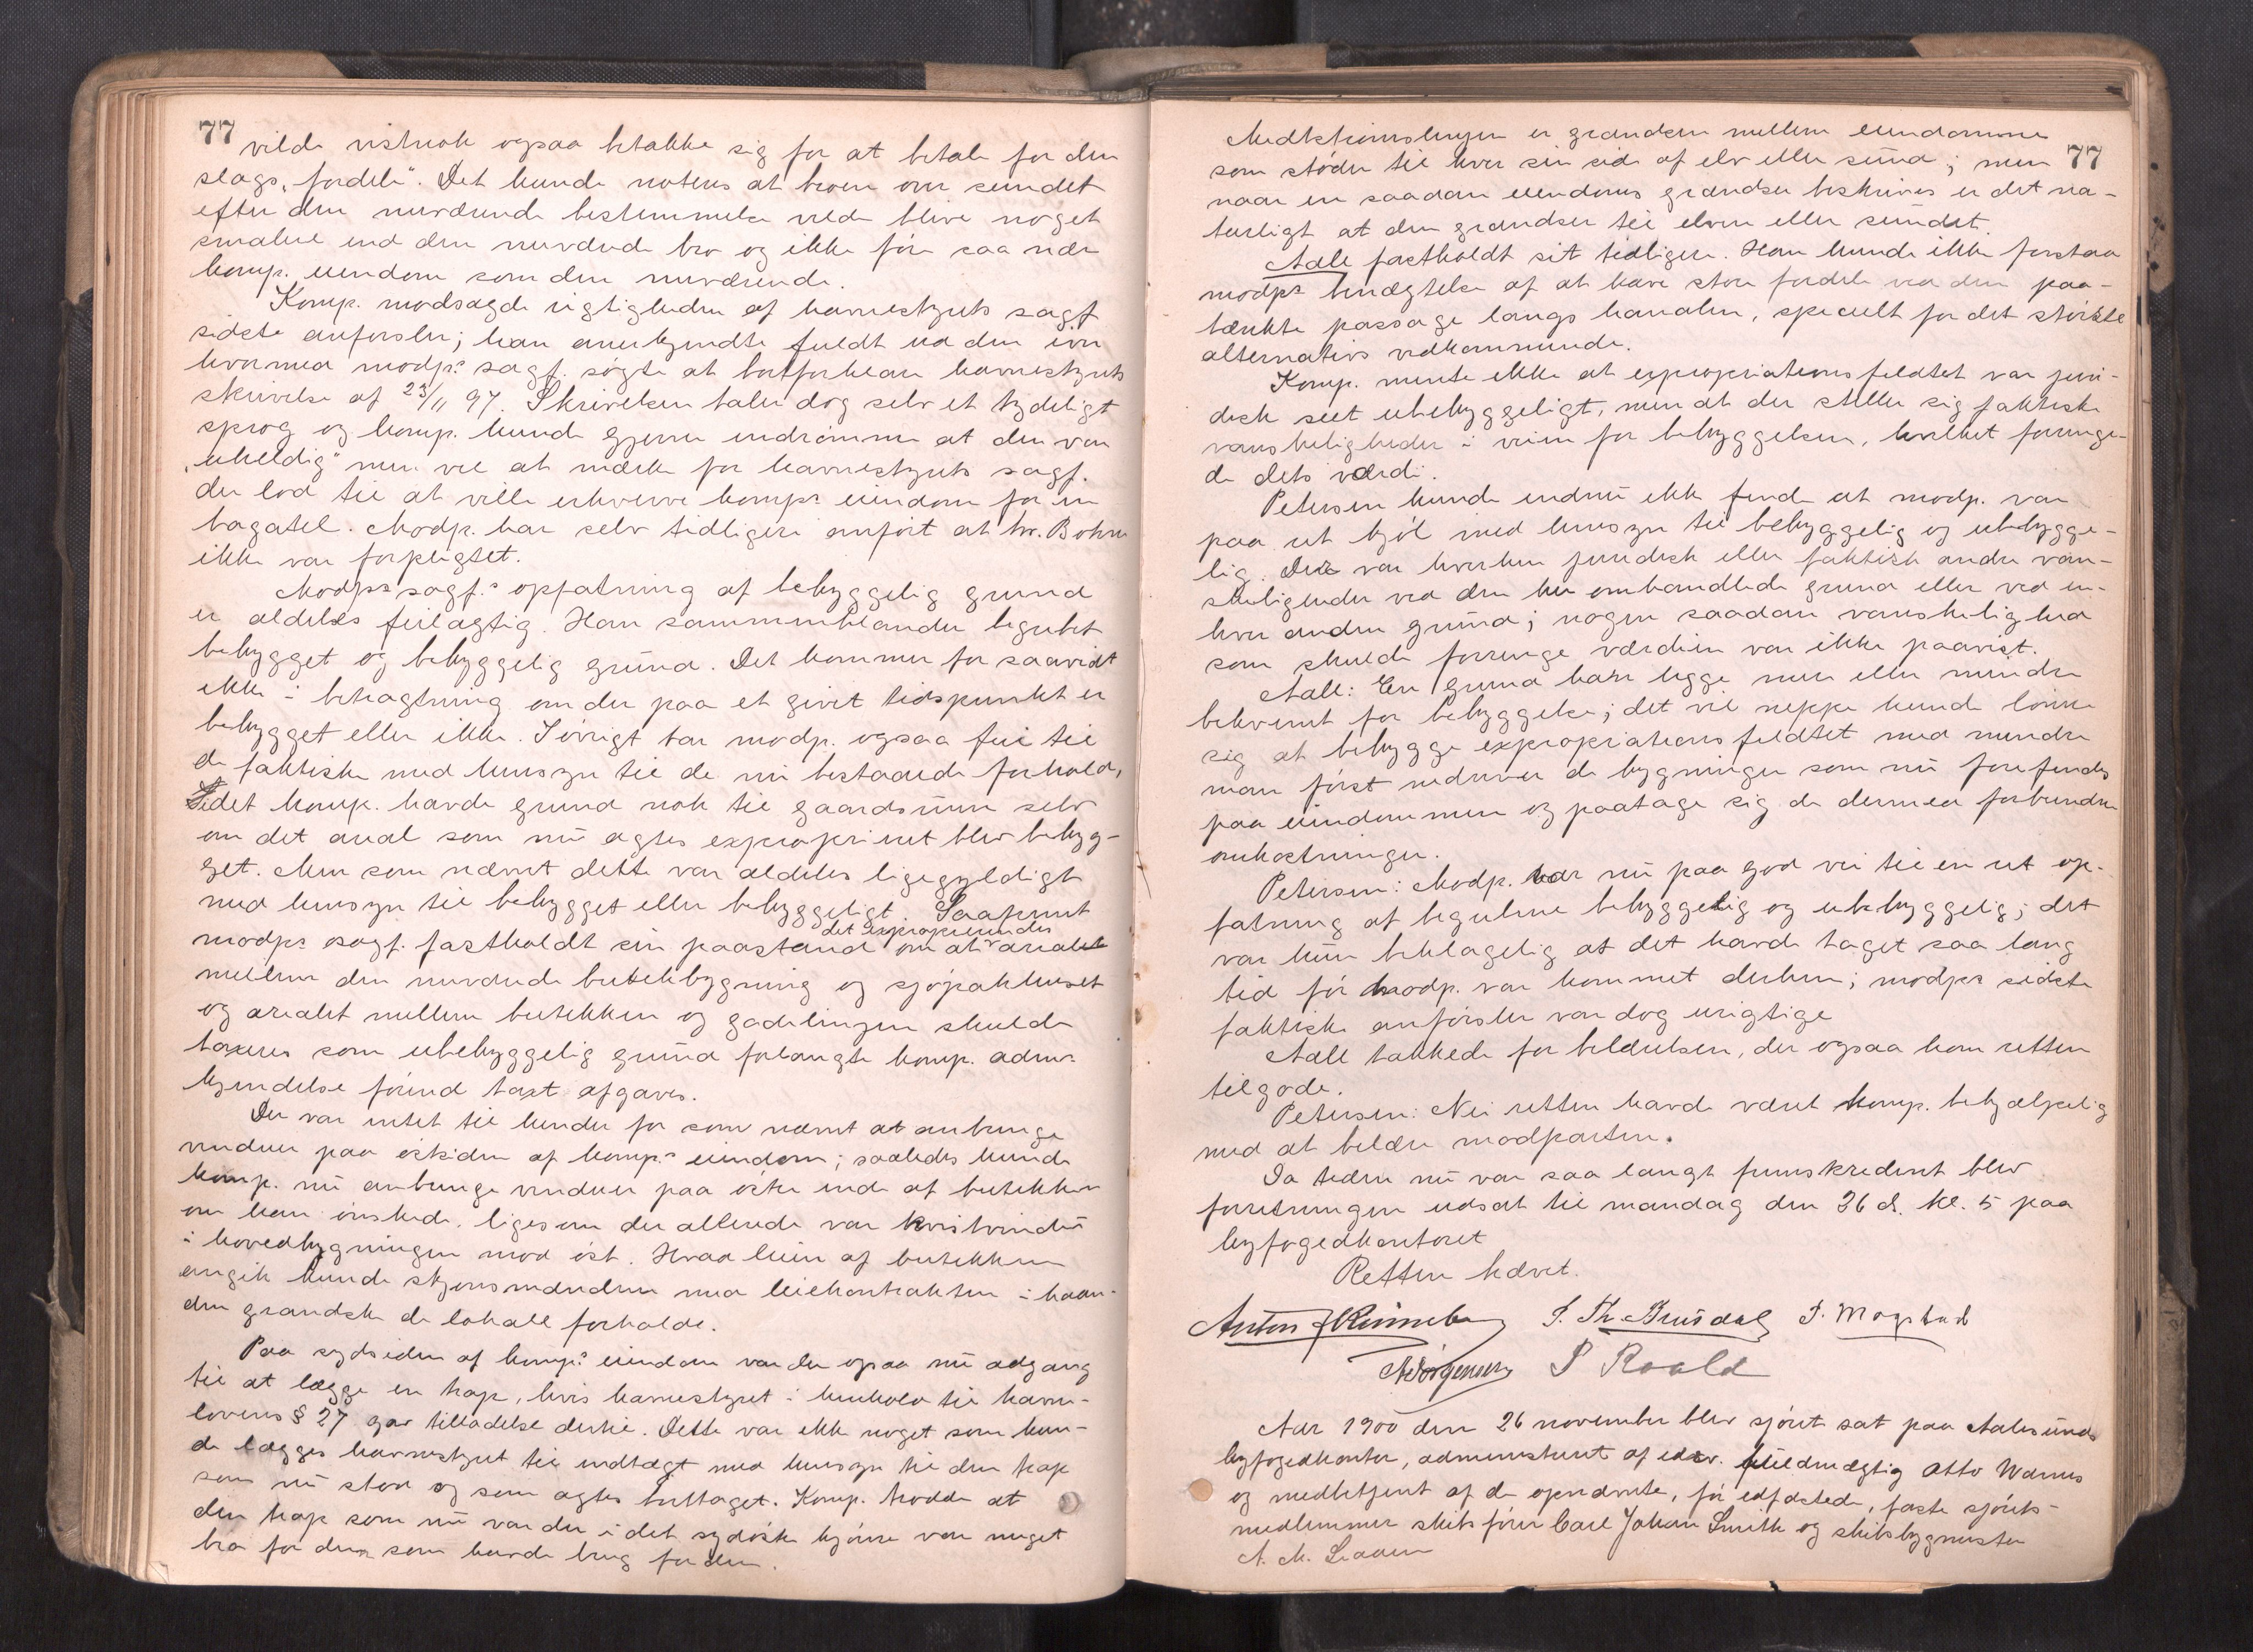 77
vilde vistnok ogsaa betakke sig for at betale for den
slags „fordele“. Det kunde noteres at broen over sundet
efter den nuværende bestemmelse vilde blive noget
smalere end den nuværende bro og ikke före saa nær
komp. eiendom som den nuværende.
Komp. modsagde rigtigheden af havnestyrets sagf
sidste anförsler; han anerkjendte fuldt ud den iver
hvormed modp.s sagf. sögte at bortforklare havnestyrets
skrivelse af 23/11 97. Skrivelsen taler dog selv et tydeligt
sprog og komp. kunde gjerne indrömme at den var
„uheldig“ men vel at mærke for havnestyrets sagf.
der lod til at ville erhverve komps eiendom for en
bagatel. Modp. har selv tidligere anfört at hr. Bohn
ikke var forpligtet.
Modps sagf.s opfatning af bebyggelig grund
er aldeles feilagtig. Han sammenblander begrebet
bebygget og bebyggelig grund. Det kommer for saavidt
ikke i betragtning om der paa et givet tidspunkt er
bebygget eller ikke. Iövrigt tar modp. ogsaa feil til
de faktiske med hensyn til de nu bestaaende forhold,
Idet komp. havde grund nok til gaardsrum selv
om det areal som nu agtes exproprieret blev bebyg-
get. Men som nævnt dette var aldeles ligegyldigt
med hensyn til bebygget eller bebyggeligt. Saafremt
modps sagf. fastholdt sin paastand om at det exproprierendes arealet
mellem den nuværende butikbygning og sjöpakhuset
og arealet mellem butikken og gadelinjen skulde
taxeres som ubebyggelig grund forlangte komp. adms
kjendelse förend taxt afgaves.
Der var intet til hinder for som nævnt at anbringe
vinduer paa östsiden af komp.s eiendom; saaledes kunde
komp. nu anbringe vinduer paa östre ende af butikken
om han önskede, ligesom der allerede var kvistvindu
i hovedbygningen mod öst. Hvad leien af butikken
angik kunde skjönsmændene med leiekontrakten i haan-
den granske de lokale forholde.
Paa sydsiden af komp.s eiendom var der ogsaa nu adgang
til at lægge en trap, hvis havnestyret i henhold til havne-
lovens § 27 gav tilladelse dertil. Dette var ikke noget som kun-
de lægges havnestyret til indtægt med hensyn til den trap
som nu stod og som agtes borttaget. Komp. trodde at
den trap som nu var der i det sydöstre hjörne var meget
bra for dem som havde brug for den.
77
Midtströmslinjen er grændsen mellem eiendomme
som stöder til hver sin side af elv eller sund; men
naar en saadan eiendoms grændser beskrives er det na-
turligt at den grændser til elven eller sundet.
Aall fastholdt sit tidligere. Han kunde ikke forstaa
modps benægtelse af at have store fordele ved den paa-
tænkte passage langs kanalen, specielt for det störste
alternativs vedkommende.
Komp. mente ikke at expropriationsfeldtet var juri-
disk seet ubebyggeligt, men at der stiller sig faktiske
vanskeligheder i veien for bebyggelsen, hvilket forringe-
de dets værdi.
Petersen kunde endnu ikke finde at modp. var
paa ret kjöl med hensyn til bebyggelig og ubebygge-
lig. Der var hverken juridisk eller faktisk andre van-
skeligheder ved den her omhandlede grund eller ved en-
hver anden grund; nogen saadan vanskelighed
som skulde forringe værdien var ikke paavist.
Aall: En grund kan ligge mere eller mindre
bekvemt for bebyggelse; det vil neppe kunde lönne
sig at bebygge expropriationsfeldtet med mindre
man först nedriver de bygninger som nu forefindes
paa eiendommen og paatage sig de dermed forbundne
omkostninger.
Petersen: Modp. var nu paa god vei til en ret op-
fatning af begreberne bebyggelig og ubebyggelig; det
var kun beklagelig at det havde taget saa lang
tid för modp. var kommet derhen; modps sidste
faktiske anförsler var dog urigtige
Aall takkede for belærelsen, der ogsaa kom retten
tilgode.
Petersen: Nei retten havde været komp. behjælpelig
med at belære modparten.
Da tiden nu var saa langt fremskredent blev
forretningen udsat til mandag den 26 d. kl. 5 paa
byfogedkontoret
Retten hævet.
Anton Rönneberg S. Th. Brusdal I. Mogstad
A Jörgensen P Roald
Aar 1900 den 26 november blev sjöret sat paa Aalesunds
byfogedkontor, administreret af edsv. fuldmægtig Otto Warnes
og medbetjent af de opnævnte, för edfæstede, faste sjörets-
medlemmer skibsförer Carl Johan Smith og skibsbygmester
A. M. Liaaen